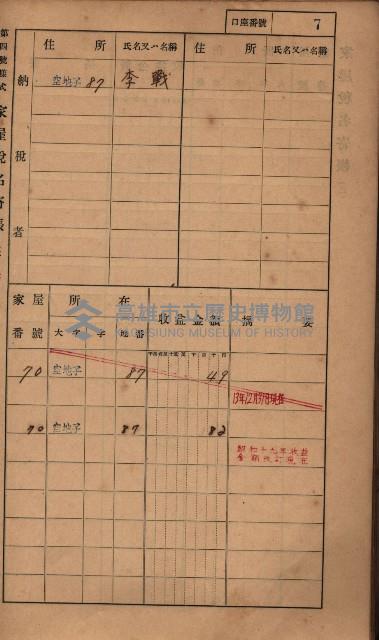 口座番號 7
第四號樣式 家屋稅名寄帳
住所 氏名又ハ名稱 住所 氏名又ハ名稱
納稅者
空地子 87 李戰
高雄市立歷史博物館
KAOHSIUNG MUSEUM OF HISTORY
家屋番號 所在 收益金額 摘要
大字 字 地番
70 空地子 87 49
13年12月31日現在
70 空地子 87 82
昭和十九年收益
金額改訂現在